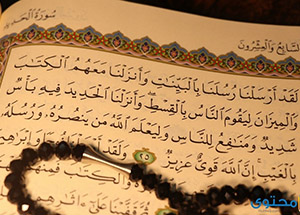 سورة الحديد
السابع والعشرون
لقد أرسلنا رسلنا بالبينات وأنزلنا معهم الكتاب
والميزان ليقوم الناس بالقسط وأنزلنا الحديد فيه بأس
شديد ومنافع للناس وليعلم الله من ينصره ورسله
بالغيب إن الله قوي عزيز ٢٥ ولقد أرسلنا نوحا وإبراهيم
والكتاب فمنهم
محتوى